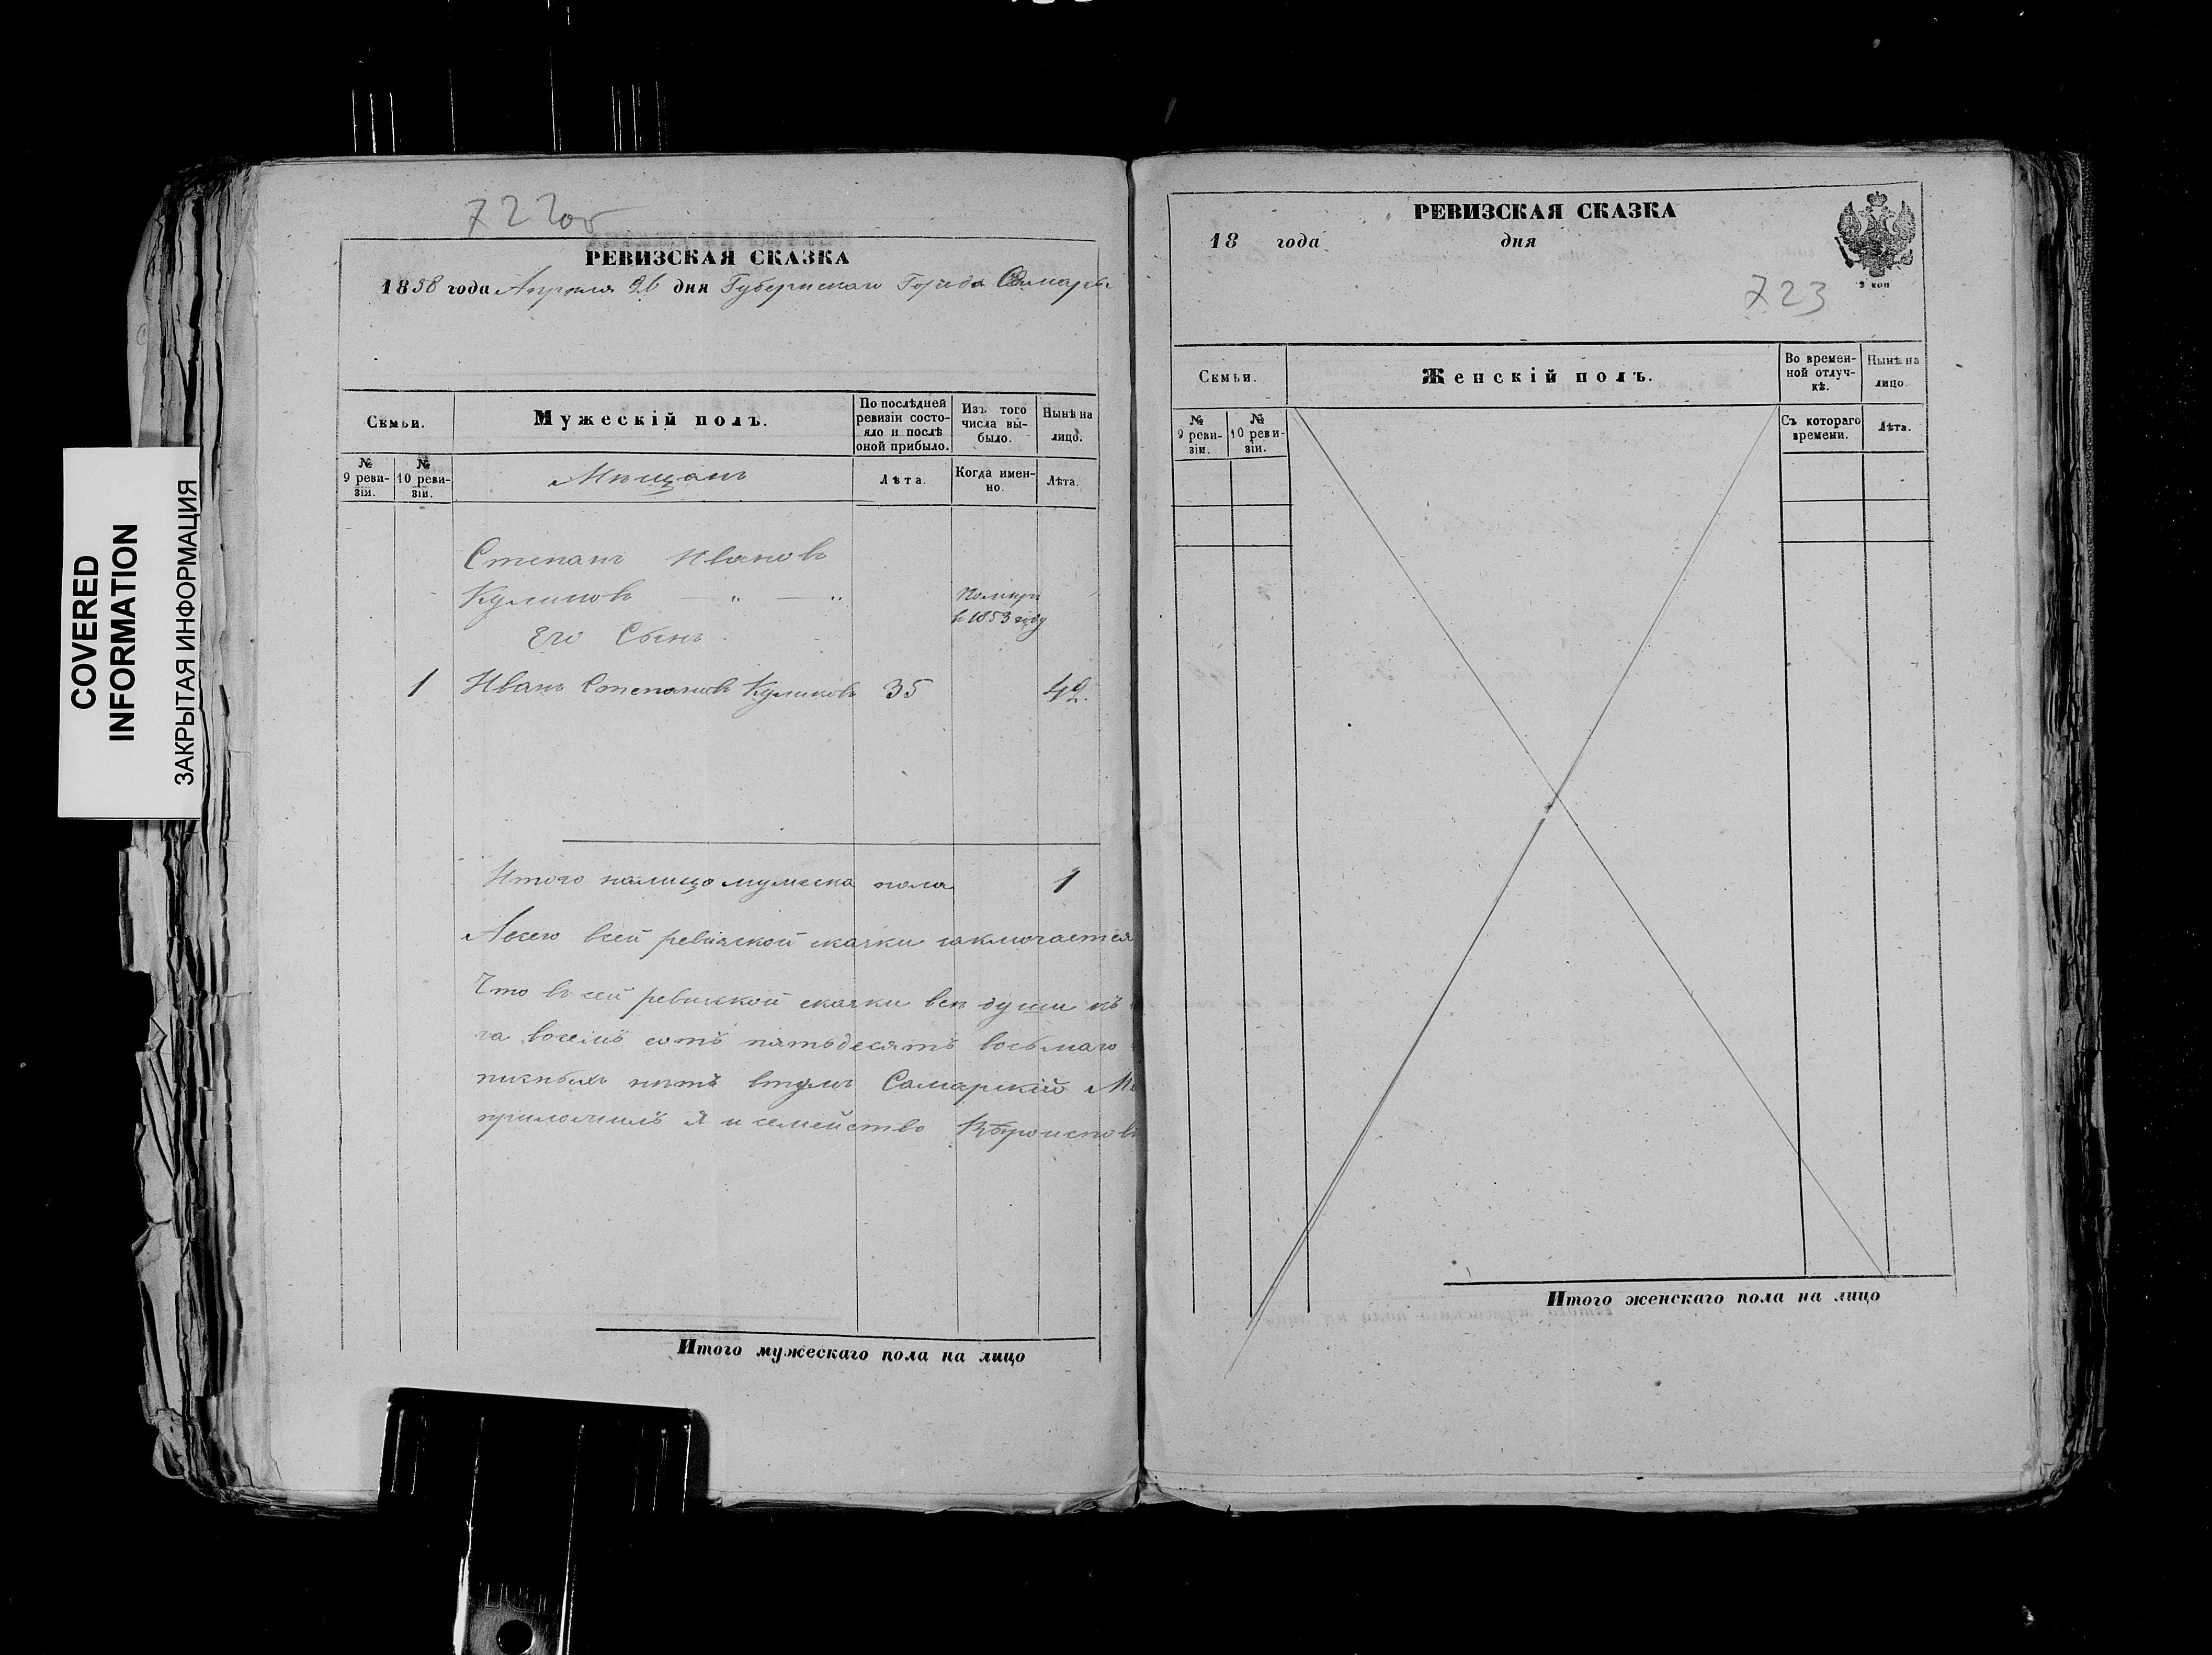 COVERED
INFORMATION
ЗАКРЫТАЯ ИНФОРМАЦИЯ
722об
РЕВИЗСКАЯ СКАЗКА
1858 года Апреля 26 дня Губернскаго Города Самары
Семьи.
Мужескій полъ.
По послѣдней
ревизіи состо-
яло и послѣ
оной прибыло.
Изъ того
числа вы-
было.
Нынѣ на
лицо.
№
9 реви-
зіи.
№
10 реви-
зіи.
Мѣщанъ
Лѣта.
Когда имен-
но.
Лѣта.
Степанъ Ивановъ
Куликовъ — „ — „
Померъ
в 1853 году
Его Сынъ
1 Иванъ Степановъ Куликовъ 35 42.
Итого налицо мужеска пола 1
всей ревизской скаски заключается
Что въ сей ревизской скаски все души
восемь сотъ пятьдесятъ восьмаго
нетъ втомъ Самарский
приложилъ я и семейство
Итого мужескаго пола на лицо
РЕВИЗСКАЯ СКАЗКА
18 года дня
2 коп
723
Семьи.
Женскій полъ.
Во времен-
ной отлуч-
кѣ.
Нынѣ на
лицо.
№
9 реви-
зіи.
№
10 реви-
зіи.
Съ котораго
времени.
Лѣта.
Итого женскаго пола на лицо